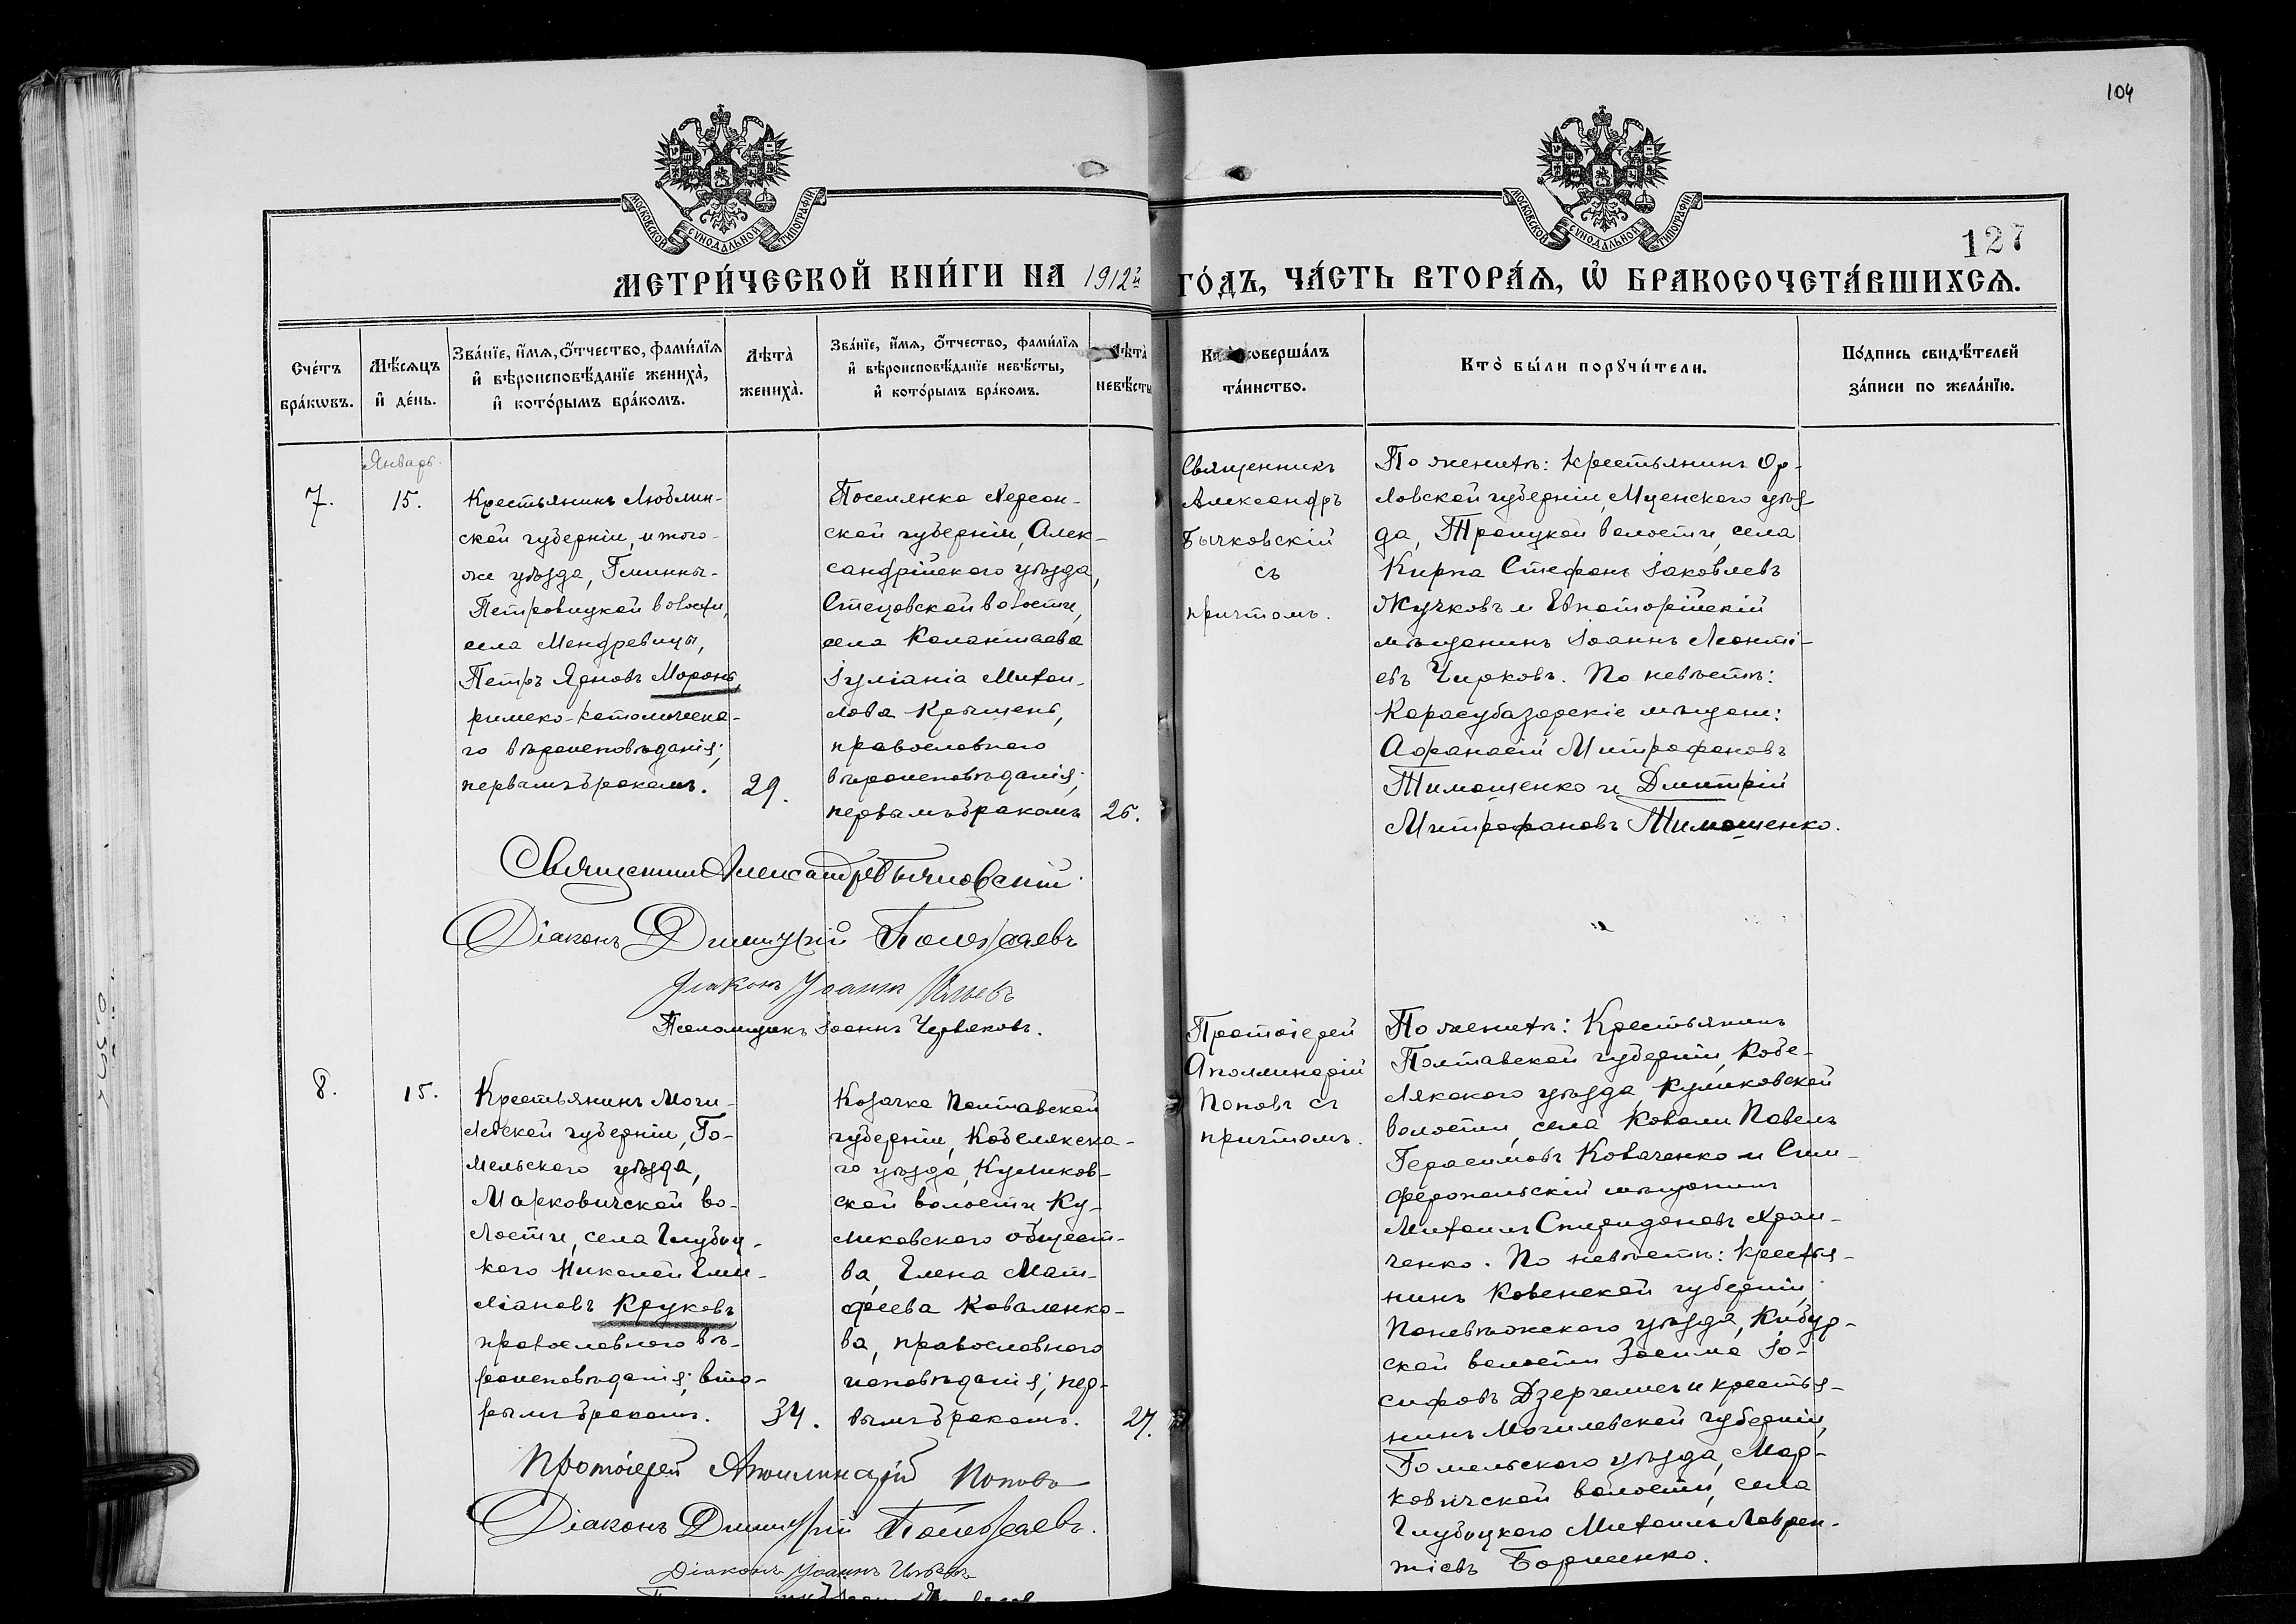 104
127
МОСКОВСКОЙ СѴНОДАЛЬНОЙ ТИПОГРАФІИ
МОСКОВСКОЙ СѴНОДАЛЬНОЙ ТИПОГРАФІИ
МЕТРИ́ЧЕСКОЙ КНИ́ГИ НА 1912й ГО́ДЪ, ЧА́СТЬ ВТОРА́Ѧ, Ѡ҆ БРАКОСОЧЕТА́ВШИХСѦ.
Сче́тъ бра́кѡвъ.
Мѣ́сѧцъ и҆ де́нь.
Зва́нїе, и҆́мѧ, ѻ҆́тчество, фами́лїѧ и҆ вѣроисповѣ́данїе жениха̀, и҆ кото́рымъ бра́комъ.
Лѣта̀ жениха̀.
Зва́нїе, и҆́мѧ, ѻ҆́тчество, фами́лїѧ и҆ вѣроисповѣ́данїе невѣ́сты, и҆ кото́рымъ бра́комъ.
Лѣта̀ невѣ́сты
Кто̀ соверша́лъ та́инство.
Кто̀ бы́ли порꙋчи́тели.
По́дпись свидѣ́телей за́писи по жела́нїю.
Январь.
7.
15.
Крестьянинъ Люблин-
ской губерніи, и того-
же уѣзда, Гмины-
Петровицкой волости,
села Мендревицы,
Петръ Яновъ Моронъ,
римско-католическа-
го вѣроисповѣданія;
первымъ бракомъ.
29.
Поселянка Херсон-
ской губерніи, Алек-
сандрійскаго уѣзда,
Стецовской волости,
села Калантаева
Іуліанія Михаи-
лова Крыщенъ,
православнаго
вѣроисповѣданія;
первымъ бракомъ
26.
Священникъ
Александръ
Бычковскій
съ
причтомъ.
По женихѣ: Крестьянинъ Ор-
ловской губерніи, Мценскаго уѣз-
да, Троицкой волости, села
Кирпа Стефанъ Іаковлевъ
Жучковъ и Евпаторійскій
мѣщанинъ Іоаннъ Леонті-
евъ Чирковъ. По невѣстѣ:
Карасубазарскіе мѣщане:
Афанасій Митрофановъ
Тимошенко и Дмитрій
Митрофановъ Тимошенко.
Священникъ Александръ Бычковскій
Діаконъ Димитрій
Діаконъ Іоаннъ Ильевъ
Псаломщикъ Іоаннъ Червяковъ.
8.
15.
Крестьянинъ Моги-
левской губерніи, Го-
мельскаго уѣзда,
Марковичской во-
лости, села Глубоц-
каго Николай Еми-
ліановъ Круковъ
православнаго вѣ-
роисповѣданія; вто-
рымъ бракомъ.
34.
Козачка Полтавской
губерніи, Кобелякска-
го уѣзда, Куликов-
ской волости, Ку-
ликовскаго общест-
ва, Елена Мат-
феева Коваленко-
ва, православнаго
исповѣданія; пер-
вымъ бракомъ.
27.
Протоіерей
Аполлинарій
Поповъ съ
причтомъ.
По женихѣ: Крестьянинъ
Полтавской губерніи, Кобе-
лякскаго уѣзда, Куликовской
волости, села Ковали Павелъ
Герасимовъ Коваченко и Сим-
феропольскій мѣщанинъ
Михаилъ Спиридоновъ Хром-
ченко. По невѣстѣ: Крестья-
нинъ Ковенской губерніи,
Поневѣжскаго уѣзда, Кибур-
ской волости Зосима Іо-
сифовъ и крестья-
нинъ Могилевской губерніи,
Гомельскаго уѣзда, Мар-
ковичской волости, села
Глубоцкаго Михаилъ Лаврен-
тіевъ Борщенко.
Протоіерей Аполлинарій Поповъ
Діаконъ Димитрій
Діаконъ Іоаннъ Ильевъ